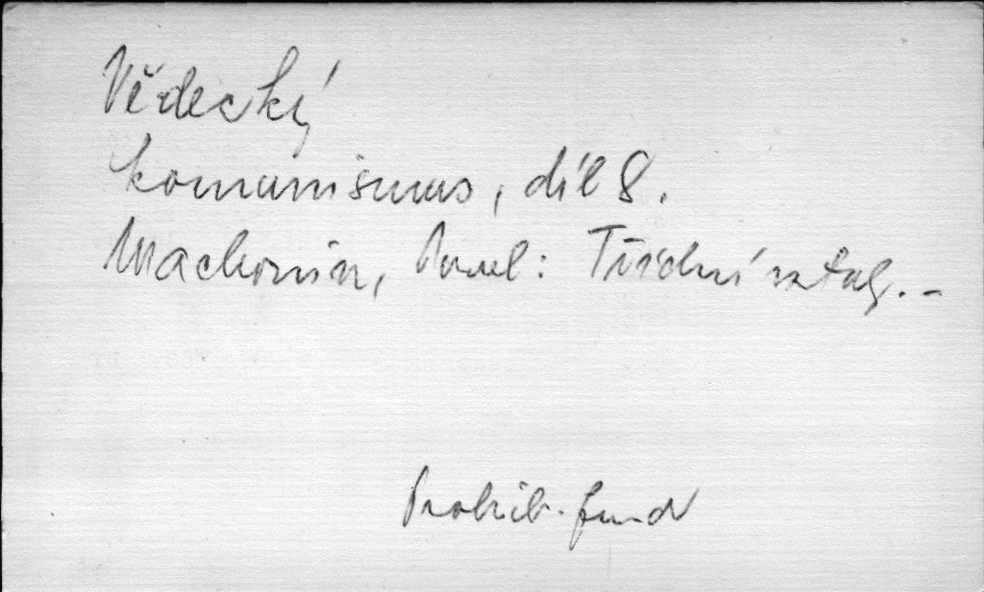 Vědecký
komunismus, díl 8.
Machonin, Pavel: Třídní vztahy. -
Prohib. fond